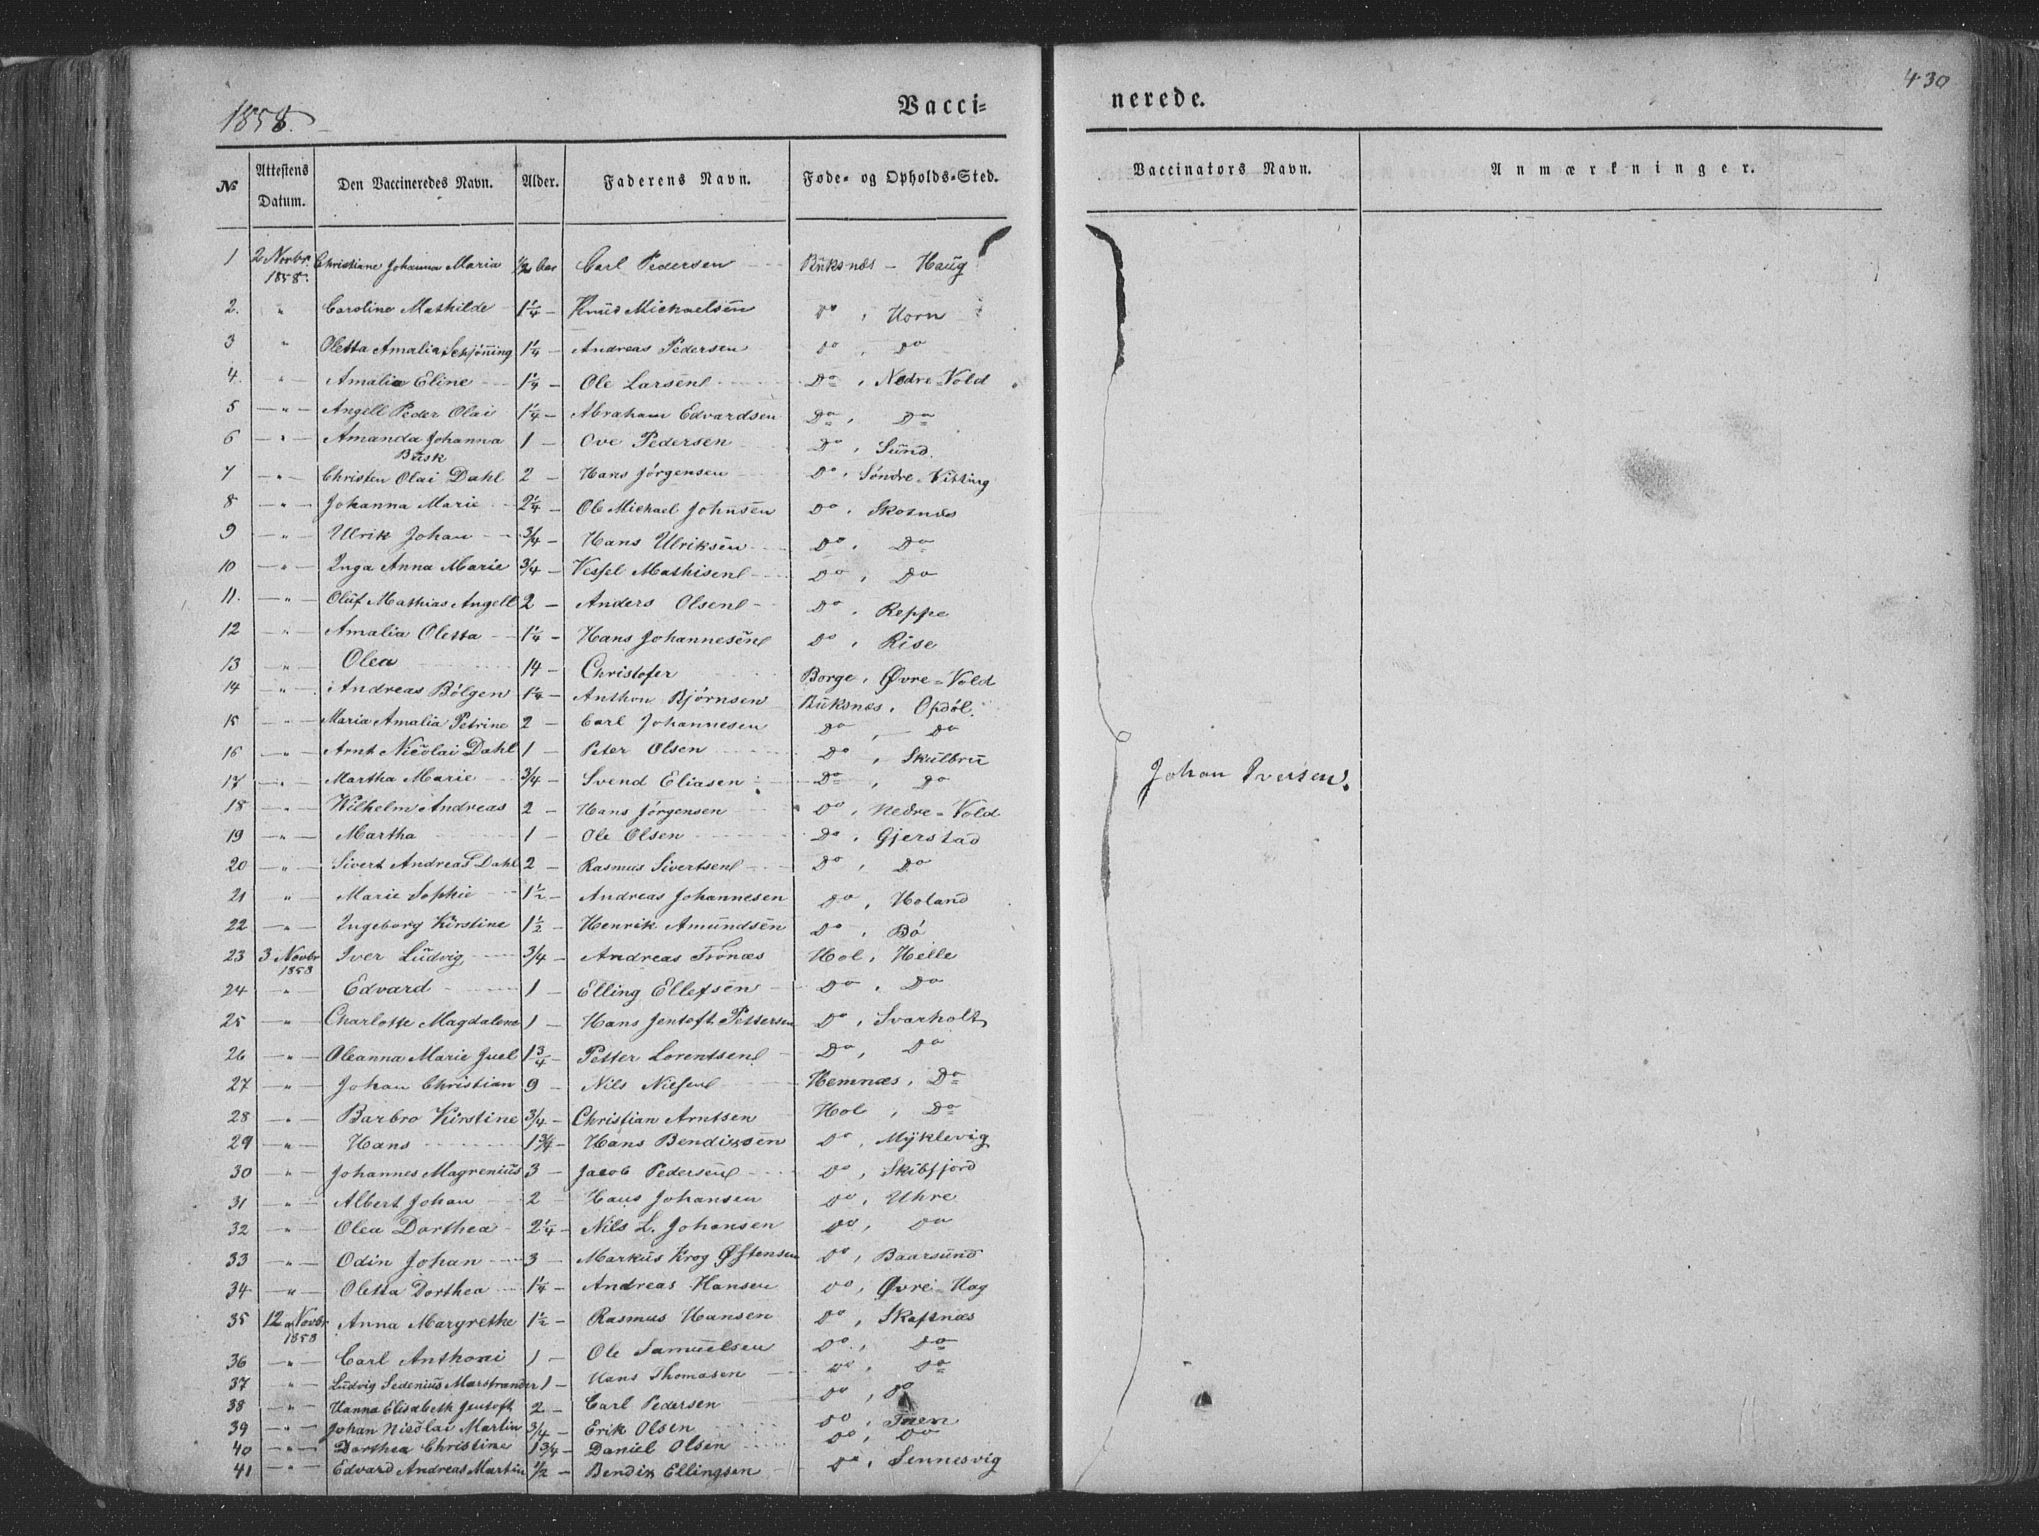 430
1858.
Vacci= nerede.
№ Attestens Datum. Den Vaccineredes Navn. Alder. Faderens Navn. Føde- og Opholds-Sted. Vaccinators Navn. Anmærkninger.
1 2 Novbr 1858. Christiane Johanna Maria 1/2 Aar Carl Pedersen Buksnæs - Haug
2. " Caroline Mathilde 1 1/4 - Knud Michaelsen Do , Horn
3 " Oletta Amalia Schjöning 1 1/4 - Andreas Pedersen Do , Do
4. " Amalia Eline 1 1/4 - Ole Larsen Do , Nedre-Vold
5 - " - Angell Peder Olai 1 1/4 - Abraham Edvardsen Do , Do
6 - " - Amanda Johanna Busk 1 - Ove Pedersen Do , Sund.
7 - " - Christen Olai Dahl 2 - Hans Jörgensen Do , Søndre-Vitting
8 - " - Johanna Marie 2 1/4 - Ole Michael Johnsen Do , Skotnæs
9 - " - Ulrik Johan 3/4 - Hans Ulriksen Do , Do
10 - " - Inga Anna Marie 3/4 - Vessel Mathisen Do , Do
11. - " - Oluf Mathias Angell 2 - Anders Olsen Do , Reppe
12 - " - Amalia Oletta 1 1/4 - Hans Johannesen Do , Rise
13 - " - Olea 14 - Christofer Borge , Øvre-Vold
14 - " - Andreas Bölgen 1 1/4 - Anthon Bjørnsen Buksnæs , Opdöl.
15 - " - Maria Amalia Petrine 2 - Carl Johannesen Do , Do
16 - " - Arnt Nicolai Dahl 1 - Peter Olsen Do , Skulbru
17 - " - Martha Marie 3/4 - Svend Eliasen Do , Do
18 - " - Wilhelm Andreas 2 - Hans Jørgensen Do , Nedre-Vold
19 - " - Martha 1 - Ole Olsen Do , Gjerstad
20 - " - Sivert Andreas Dahl 2 - Rasmus Sivertsen Do , Do
21 " - Marie Sophie 1 1/2 - Andreas Johannesen Do , Holand
22 - " - Ingeborg Kirstine 1 1/2 - Henrik Amundsen Do , Bö
23 3 Novbr 1858 Iver Ludvig 3/4 - Andreas Trönæs Hol , Helle
24 - " - Edvard 1 - Elling Ellefsen Do , Do
25 - " - Charlotte Magdalene 1 - Hans Jentoft Pettersen Do , Svarholt
26 - " - Oleanna Marie Juel 1 3/4 - Petter Lorentsen Do , Do
27 - " - Johan Christian 9 - Nils Nielsen Hemnæs , Do
28 - " - Barbro Kirstine 3/4 - Christian Arntsen Hol , Do
29 - " - Hans 1 3/4 - Hans Bendixsen Do , Myklevig
30 - " - Johannes Magrenius 3 - Jacob Pedersen Do , Skibfjord
31 - " - Albert Johan 2 - Hans Johansen Do , Uhre
32 - " - Olea Dorthea 2 1/4 - Nils L. Johansen Do , Do
33 - " - Odin Johan 3 - Markus Krog Østensen Do , Baarsund
34 - " - Oletta Dorthea 1 1/4 - Andreas Hansen Do , Øvre-Hag
35 12 Novbr 1858 Anna Margrethe 1 1/2 - Rasmus Hansen Do , Skaftnæs
36 - " - Carl Anthoni 1 - Ole Samuelsen Do , Do
37 - " - Ludvig Sedenius Marstrander 1 - Hans Thomasen Do , Do
38 - " - Hanna Elisabeth Jentoft 2 - Carl Pedersen Do , Do
39 - " - Johan Nicolai Martin 3/4 - Erik Olsen Do , Inen
40 - " - Dorthea Christine 1 3/4 - Daniel Olsen Do , Do
41 - " - Edvard Andreas Martin 1/2 - Bendix Ellingsen Do , Sennesvig
Johan Iversen.